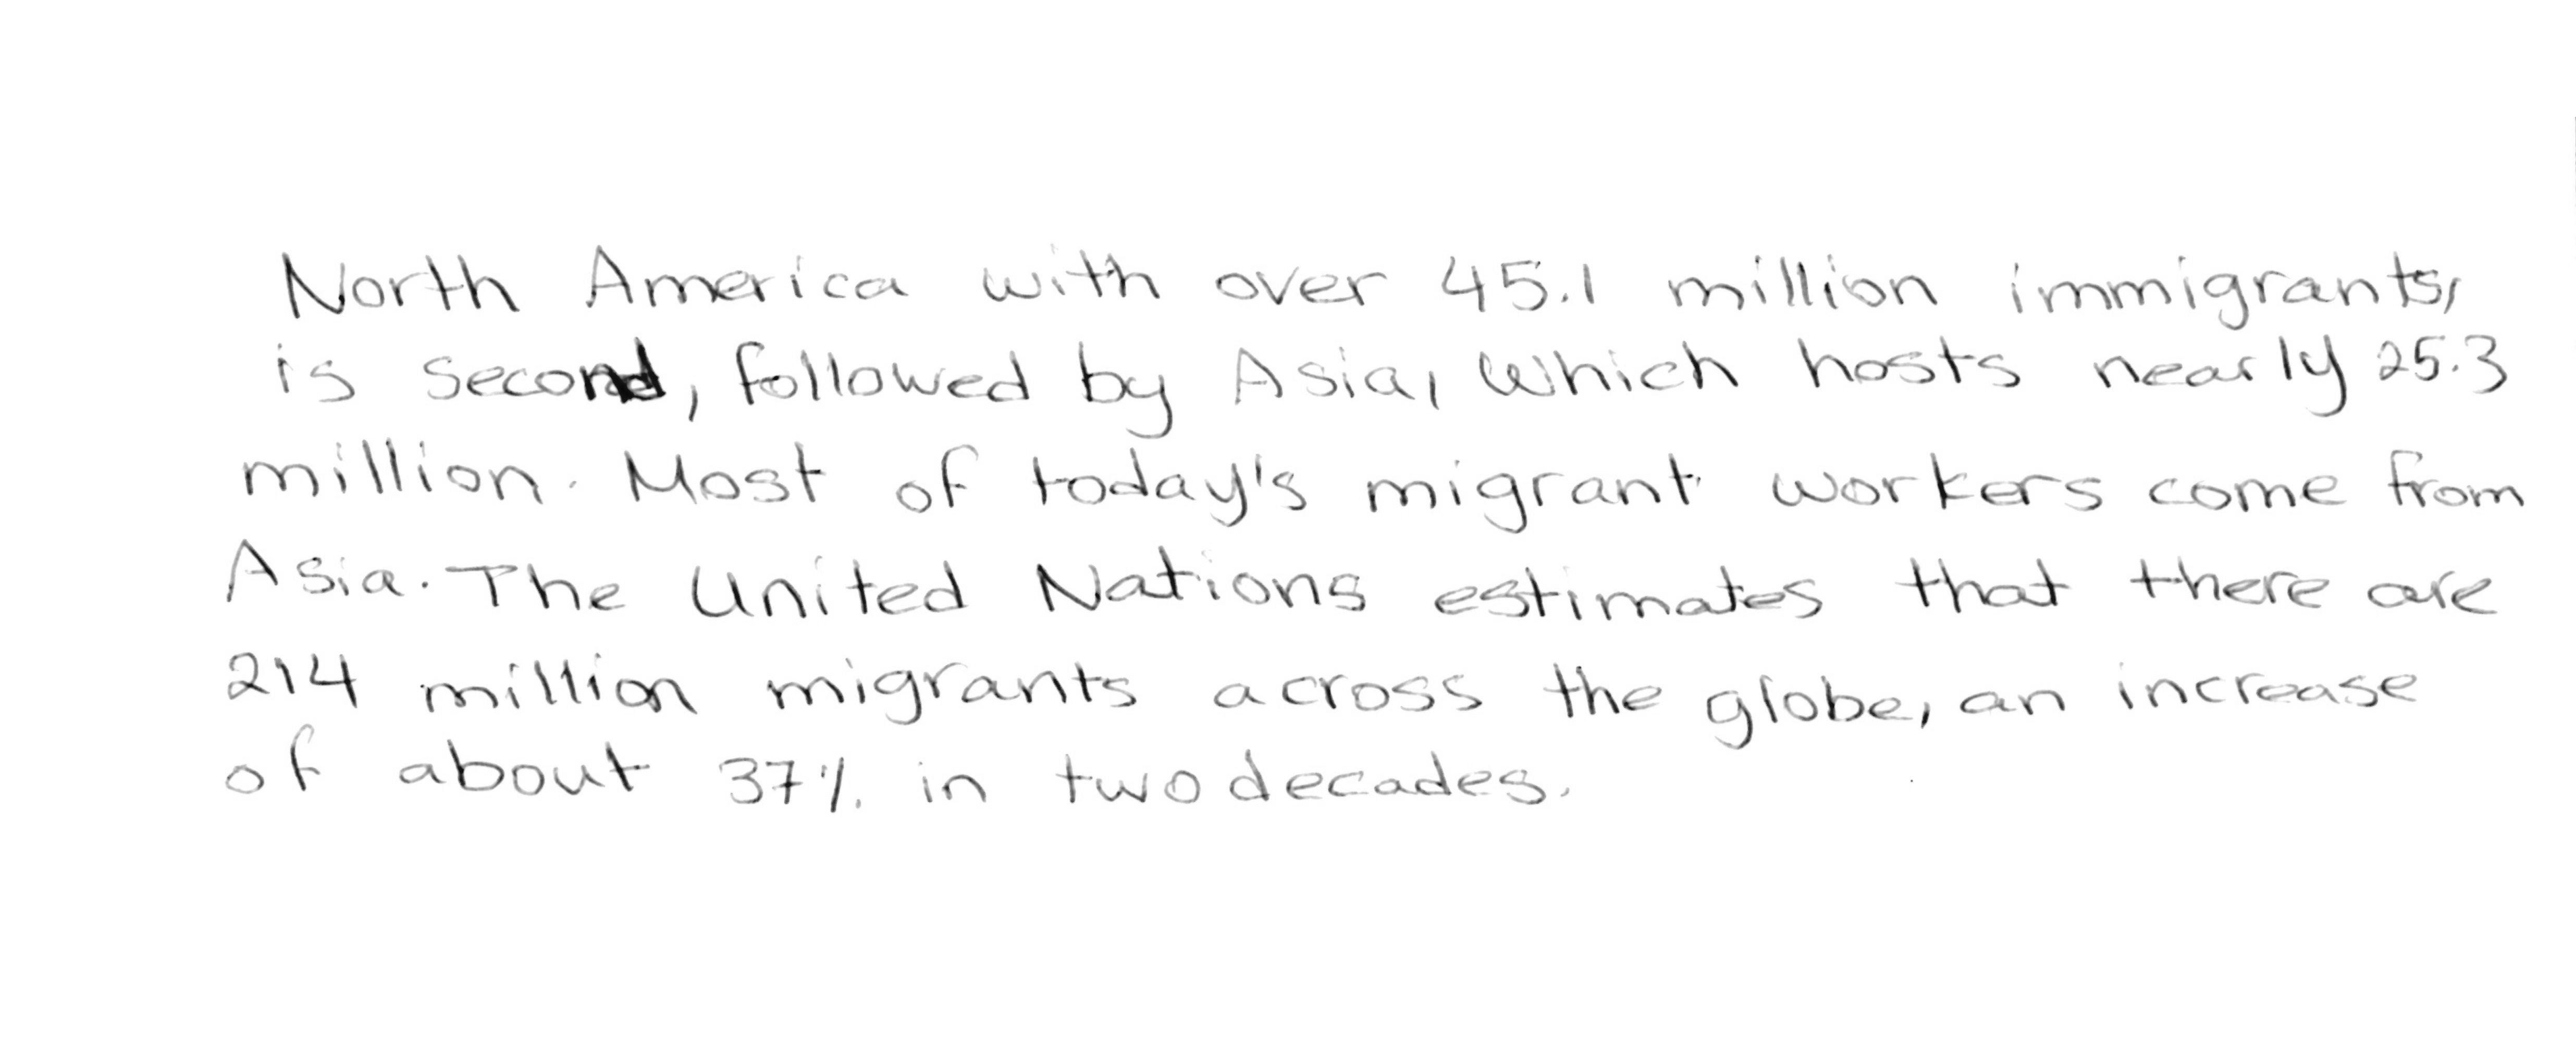 North America with over 45.1 million immigrants,
is second, followed by Asia, which hosts nearly 25.3
million. Most of today's migrant workers come from
Asia. The United Nations estimates that there are
214 million migrants across the globe, an increase
of about 37% in two decades.